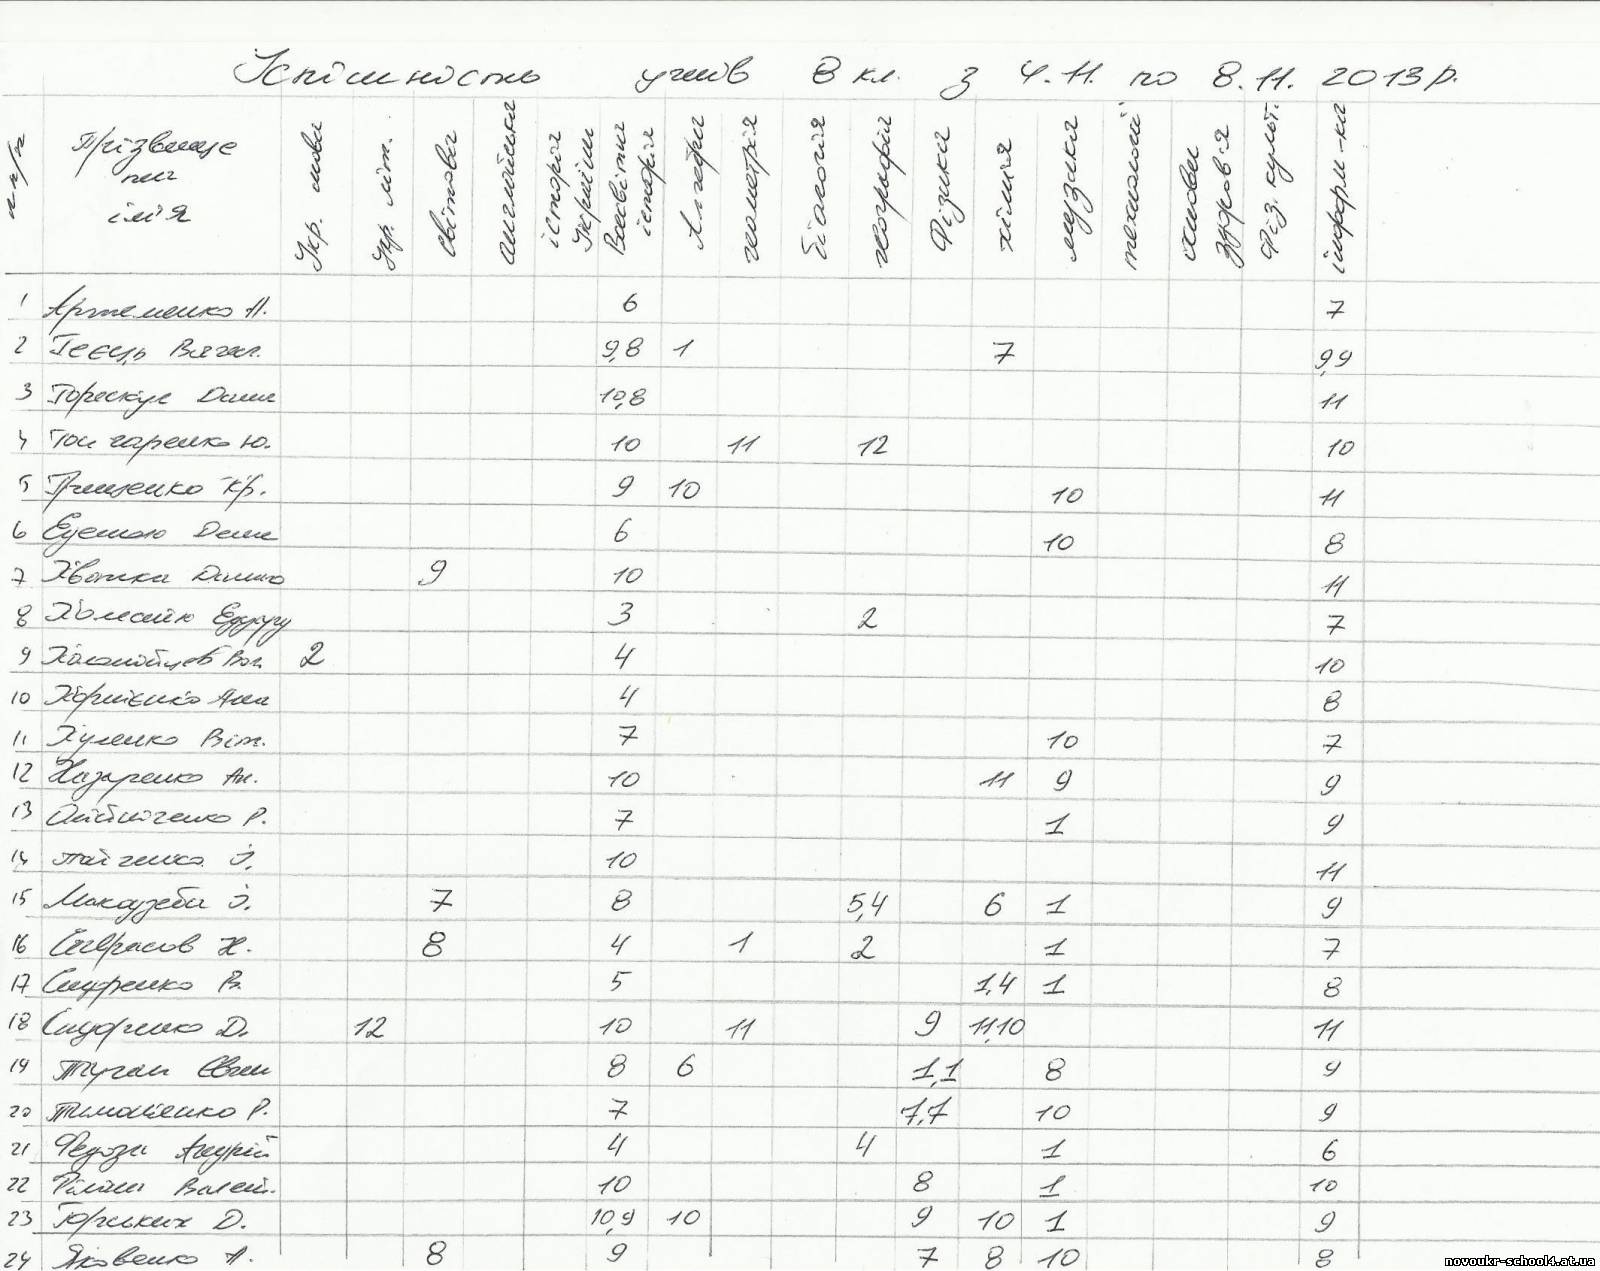 Успішність учнів 8 кл. з 4.11. по 8.11. 2013р.
п/п Прізвище та ім'я Укр. мова Укр. літ. світова англійська історія України Всесвітня історія Алгебра геометрія біологія географія Фізика хімія музика технології основи здоров'я Фіз. культ. інформ-ка
1 Артеменко А. 6 7
2 Геєць Вячесл. 9,8 1 7 9,9
3 10,8 11
4 Гончаренко Ю. 10 11 12 10
5 Грищенко Кр. 9 10 10 11
6 6 10 8
7 Квотка Данило 9 10 11
8 3 2 7
9 2 4 10
10 Корнієнко Анна 4 8
11 Куленко Віт. 7 10 7
12 Назаренко Ан. 10 11 9 9
13 Р. 7 1 9
14 І. 10 11
15 І. 7 8 5,4 6 1 9
16 Саврасов Н. 8 4 1 2 1 7
17 Сидоренко В. 5 1,4 1 8
18 Сидоренко Д. 12 10 11 9 11,10 11
19 8 6 1,1 8 9
20 Тимошенко Р. 7 7,7 10 9
21 Андрій 4 4 1 6
22 Вален. 10 8 1 10
23 Горських Д. 10,9 10 9 10 1 9
24 Яковенко А. 8 9 7 8 10 8
novoukr-school4.at.ua